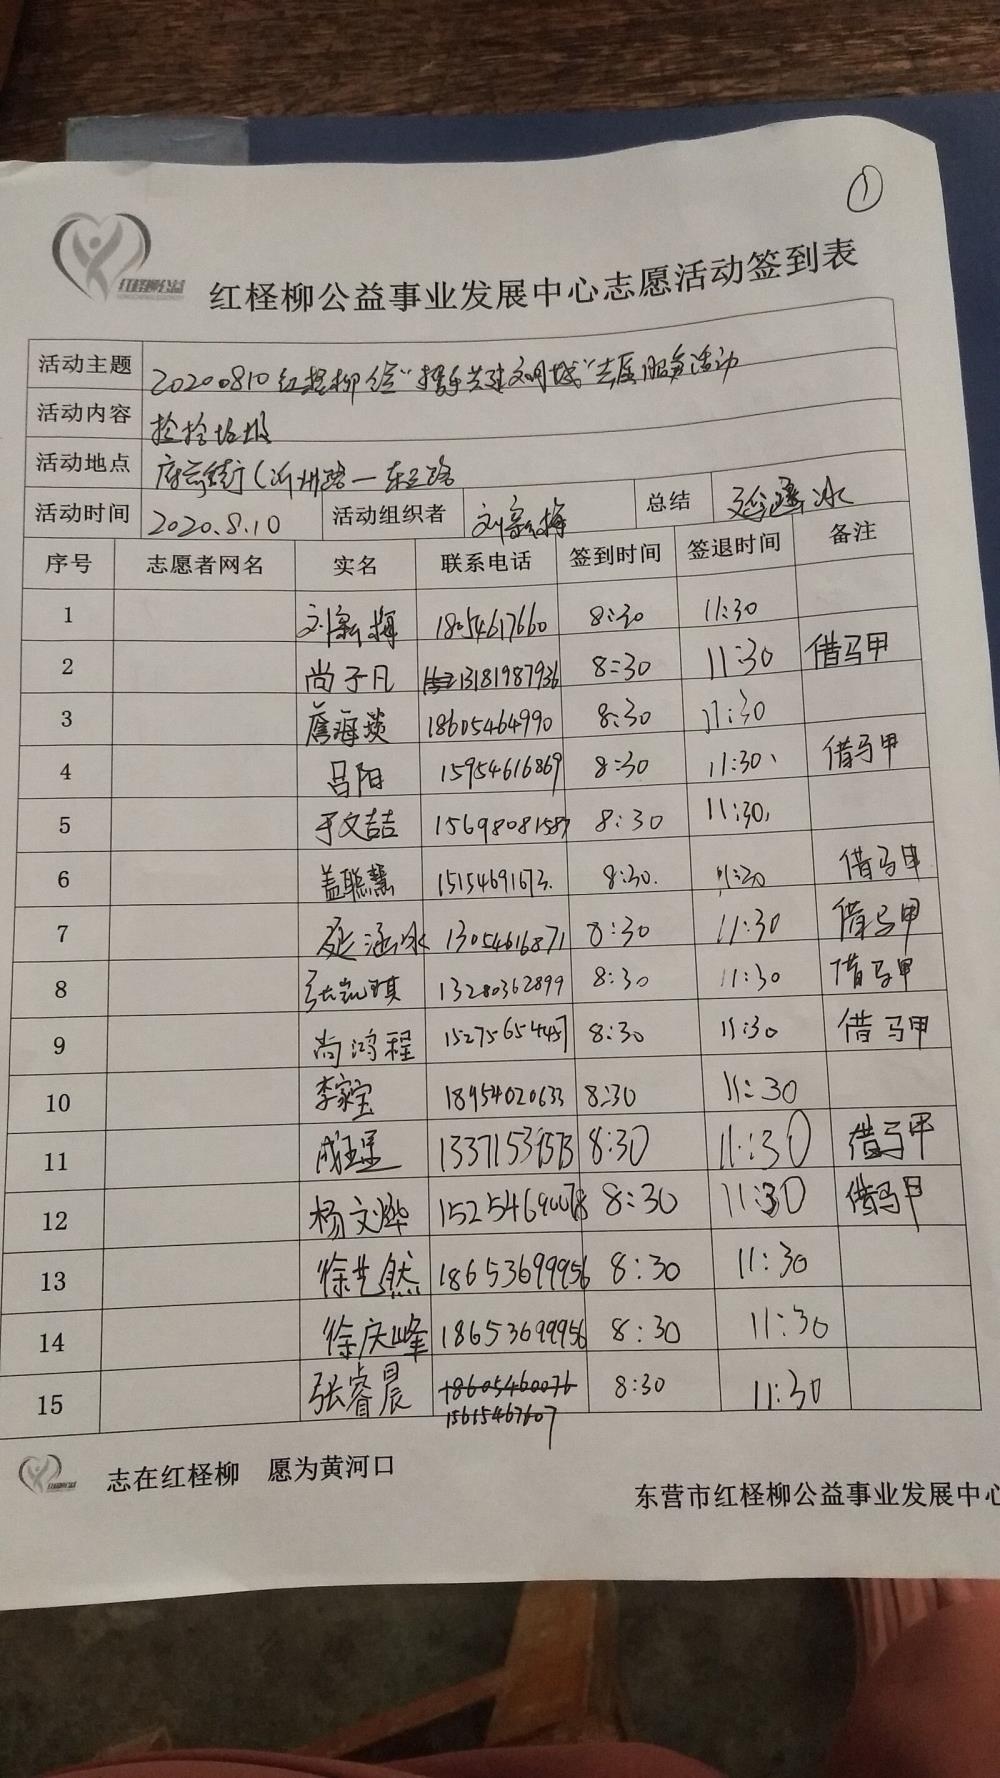 ①
红柽柳公益
红柽柳公益事业发展中心志愿活动签到表
活动主题 20200810红柽柳公益“携手共建文明城”志愿服务活动
活动内容 捡拾垃圾
活动地点 府前街(沂州路—东三路
活动时间 2020.8.10 活动组织者 刘新梅 总结 延涵冰
序号 志愿者网名 实名 联系电话 签到时间 签退时间 备注
1 刘新梅 18054617660 8:30 11:30
2 尚子凡 13181987936 8:30 11:30 借马甲
3 18605464990 8:30 11:30
4 吕阳 15954616869 8:30 11:30、 借马甲
5 于文喆 15698081587 8:30 11:30,
6 盖聪慧 15154691673. 8:30. 11:30 借马甲
7 延涵冰 13054616871 8:30 11:30 借马甲
8 张凯琪 13280362899 8:30 11:30 借马甲
9 尚鸿程 15275654457 8:30 11:30 借马甲
10 李家宝 18954020633 8:30 11:30
11 13371539573 8:30 11:30 借马甲
12 杨文烨 15254690078 8:30 11:30 借马甲
13 徐艺然 18653699956 8:30 11:30
14 徐庆峰 18653699956 8:30 11:30
15 张睿晨 18605460076 8:30 11:30
15615467607
志在红柽柳 愿为黄河口
东营市红柽柳公益事业发展中心